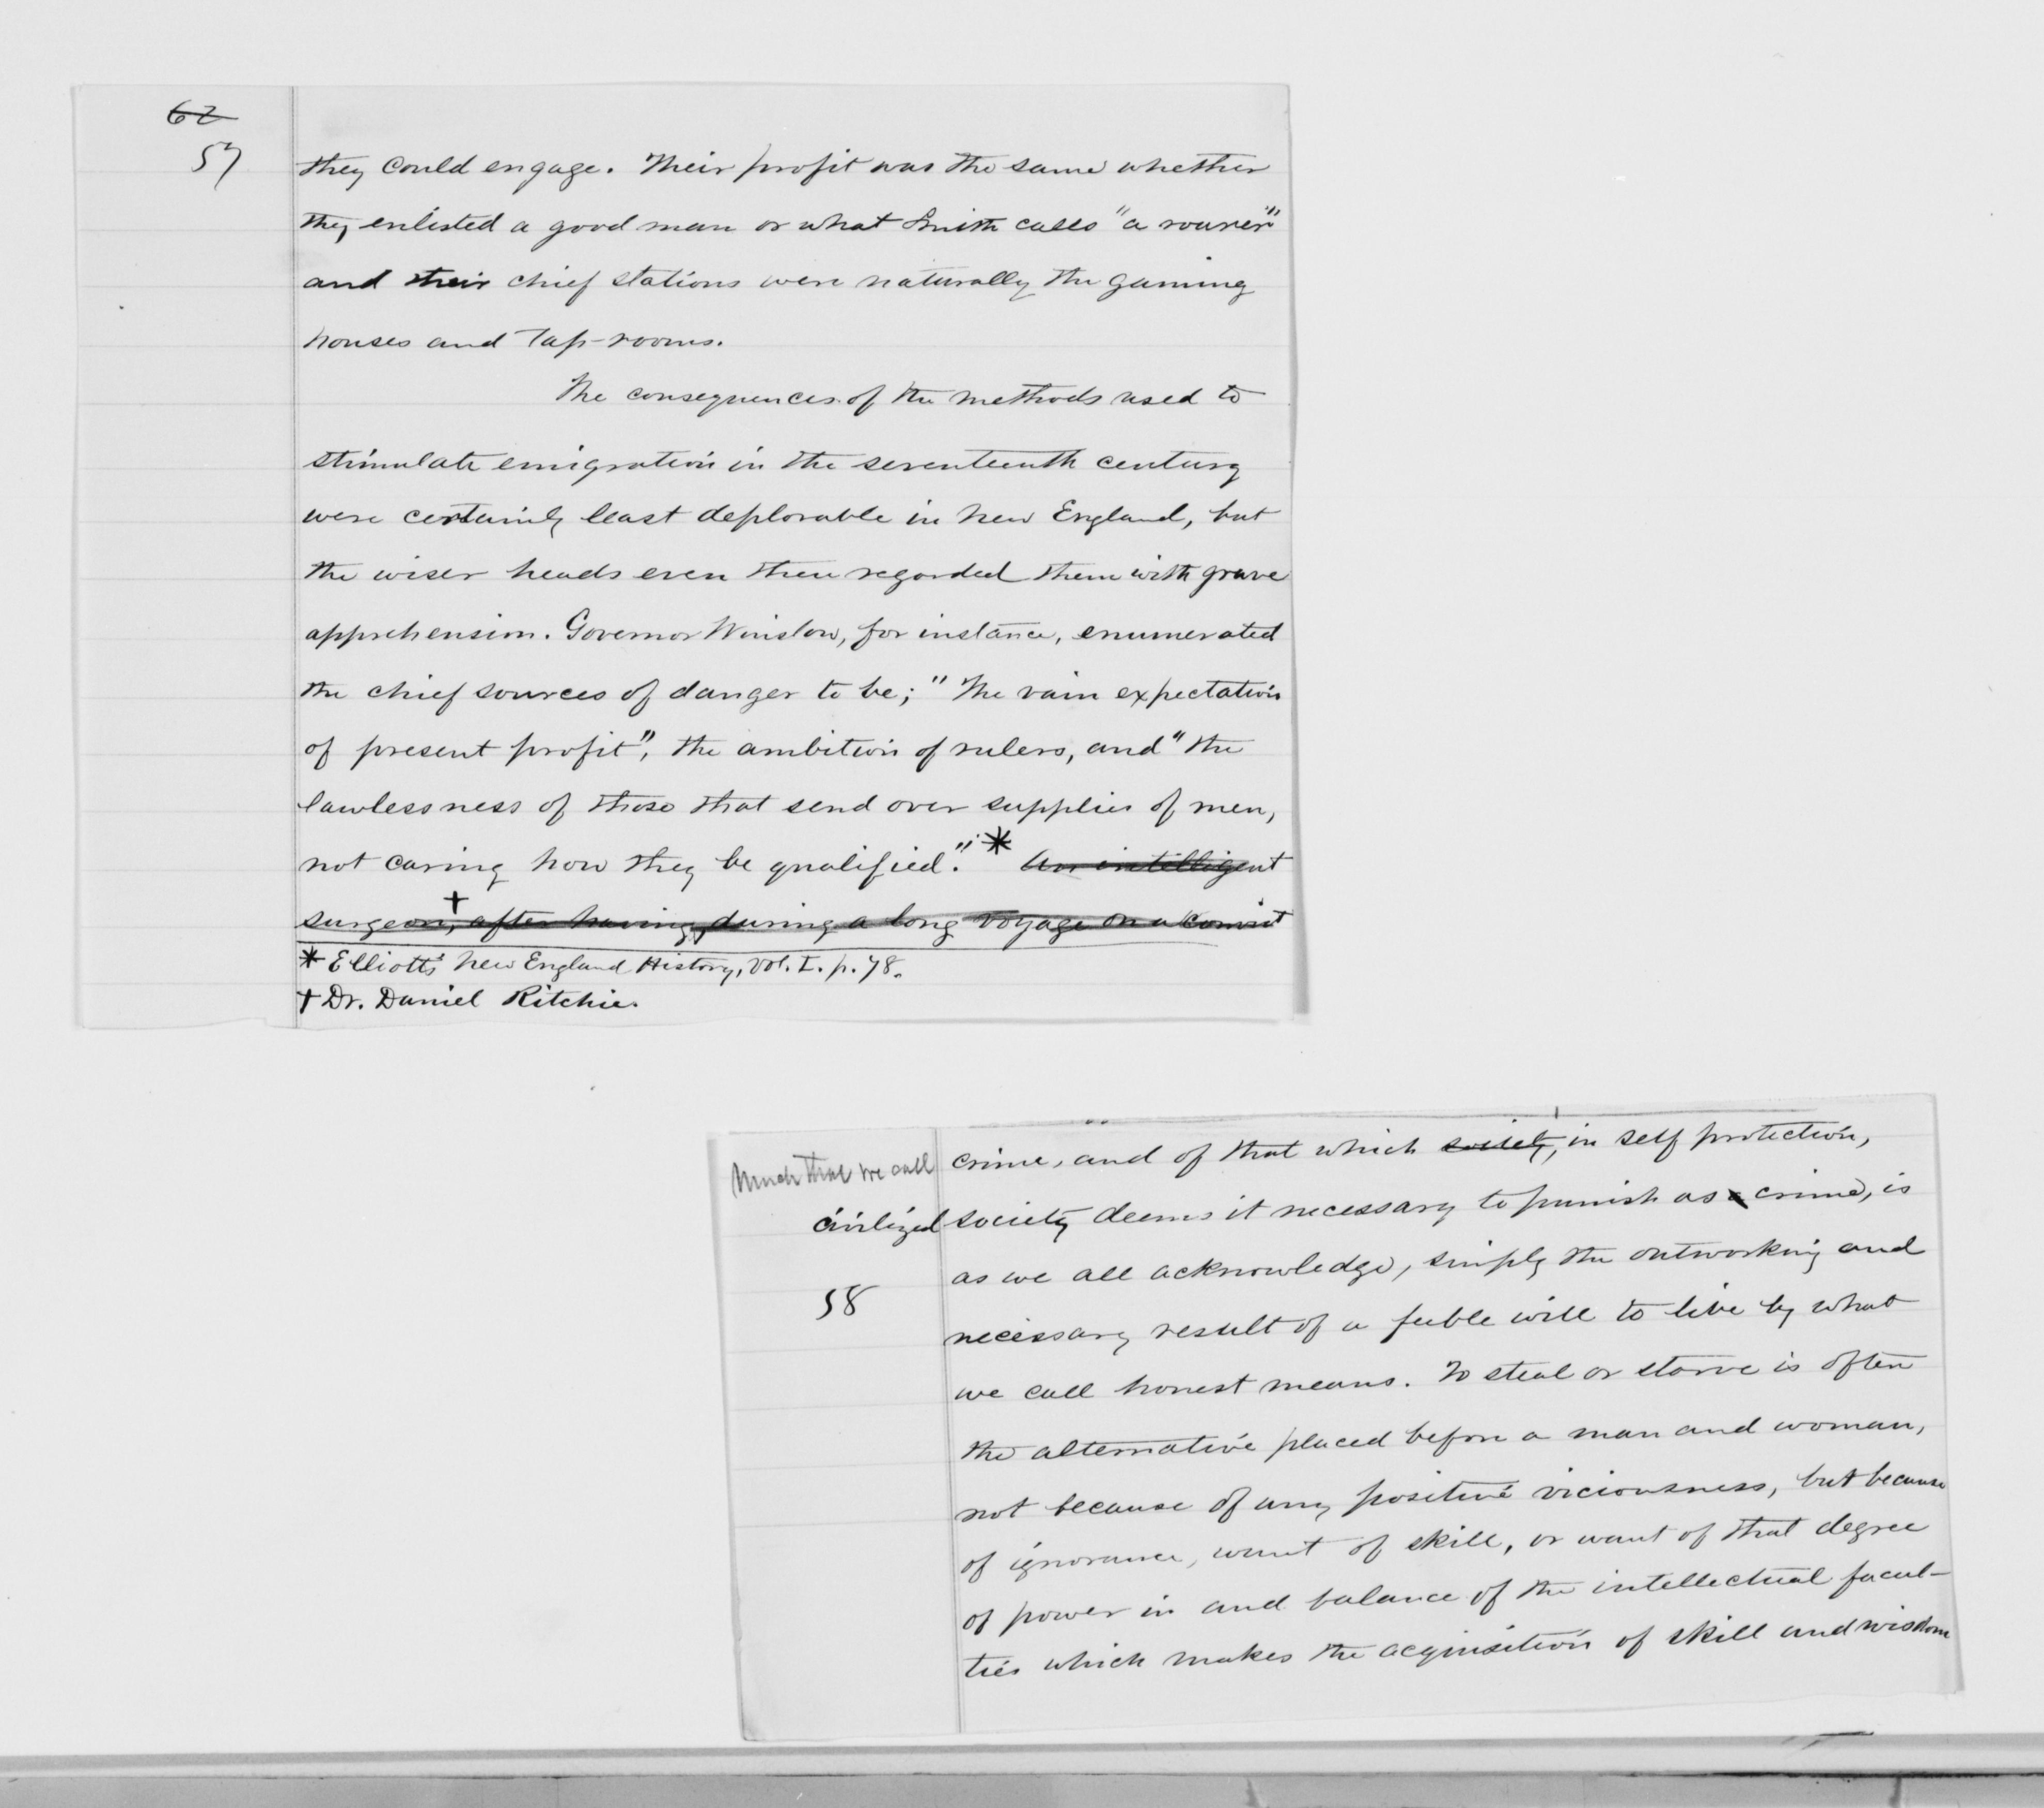 62
57
they could engage. Their profit was the same whether
they enlisted a good man or what Smith calls "a roarer"
and their chief stations were naturally the gaming
houses and Tap-rooms.
The consequences of the methods used to
stimulate emigration in the seventeenth century
were certainly least deplorable in New England, but
the wiser heads even then regarded them with grave
apprehension. Governor Winslow, for instance, enumerated
the chief sources of danger to be; "The vain expectation
of present profit", the ambition of rulers, and "the
lawlessness of those that send over supplies of men,
not caring how they be qualified." * An intelligent
surgeon, † after having, during a long voyage on a convict
* Elliott's New England History, Vol. I. p. 78.
† Dr. Daniel Ritchie.
Much that we call
crime, and of that which society, in self protection,
civilized society deems it necessary to punish as crime, is
58
as we all acknowledge, simply the outworking and
necessary result of a feeble will to live by what
we call honest means. To steal or starve is often
the alternative placed before a man and woman,
not because of any positive viciousness, but because
of ignorance, want of skill, or want of that degree
of power in and balance of the intellectual facul-
ties which makes the acquisition of skill and wisdom